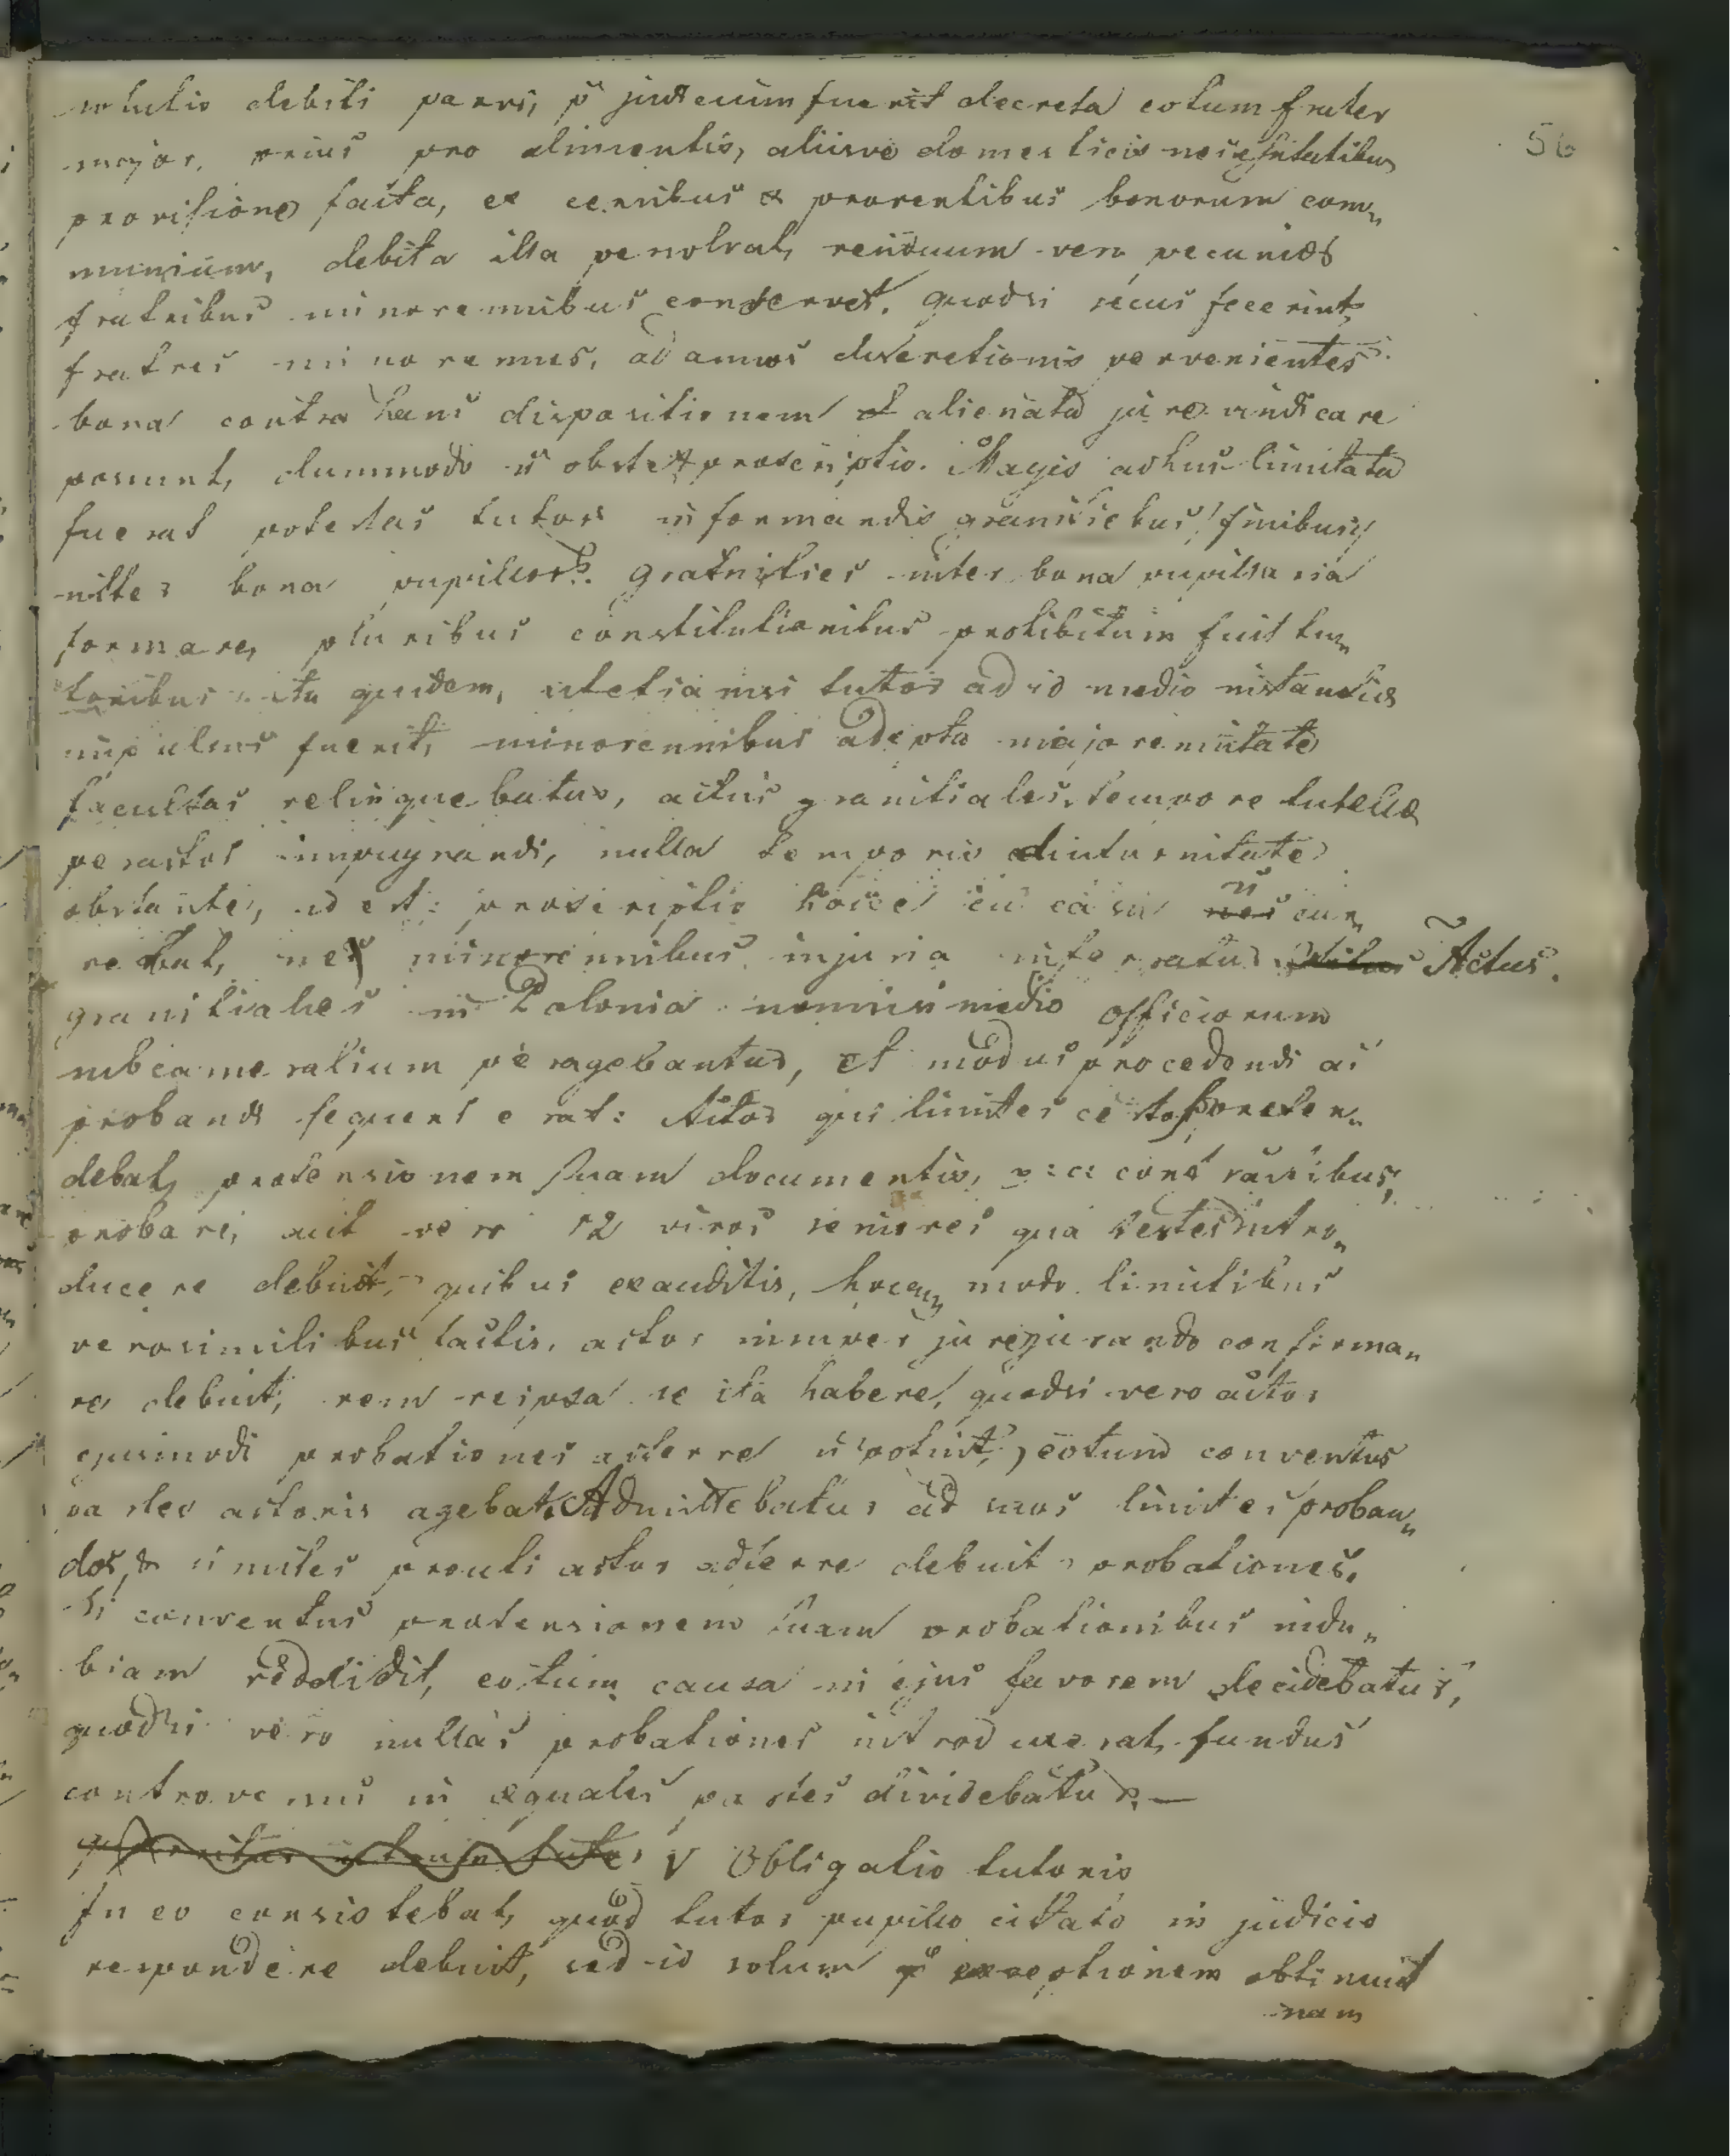 solutio debiti parvi, p judicium fuerit decreta eotum frater
major, prius pro alimentis, aliisve domesticis necessitatibus
provisione facta, ex censibus & proventibus bonorum com„
munium, debita illa persolvat, residuum vero pecuniæ
fratribus minorennibus conservet. quodsi secus fecerint,
fratres minorennes, ad annos discretionis pervenientes
bona contra hanc dispositionem alienata jure vindicare
possunt, dummodo ñ obstet præscriptio. Magis adhuc limitata
fuerat potestas tutoris in formandis granitiebus / finibus /
inter bona pupillor. granities inter bona pupillaria
formare, pluribus constitutionibus prohibitum fuit tu„
toribus ita quidem, ut etiamsi tutor ad id medio instantiæ
impulsus fuerit, minorennibus adepta majorennitate
facultas relinquebatur, actus granitiales, tempore tutellæ
peractos impugnandi, nulla temporis diuturnitate
obstante, id est: præscriptio hocce in casu ñ cur„
rebat, ne minorennibus injuria inferratur Actus.
granitiales in Polonia nonnisi medio officiorum
subcameralium peragebantur, et modus procedendi ac
probandi sequens erat: Actor qui limites præten„
debat, prætensionem suam documentis,
probare, aut vero 12 viros seniores qua testes intro„
ducere debuit, quibus exauditis, hocq modo limitibus
verosimilibus factis, actor insuper jurejurando confirma„
re debuit, rem reipsa se ita habere, quodsi vero actor
ejusmodi probationes adferre ñ potuit, eotum conventus
partes actoris agebat, Admittebatur ad suos limites proban„
dos, & similes prouti actor adferre debuit probationes.
Si conventus prætensionem suam probationibus indu„
biam reddidit, eotum causa in ejus favorem decidebatur,
quodsi vero nullas probationes introduxerat, fundus
controversus in æquales partes dividebatur. —
V Obligatio tutoris
In eo consistebat, quod tutor pupillo citato in judicio
respondere debuit, sed id solum p exceptionem obtinuit
nam
56